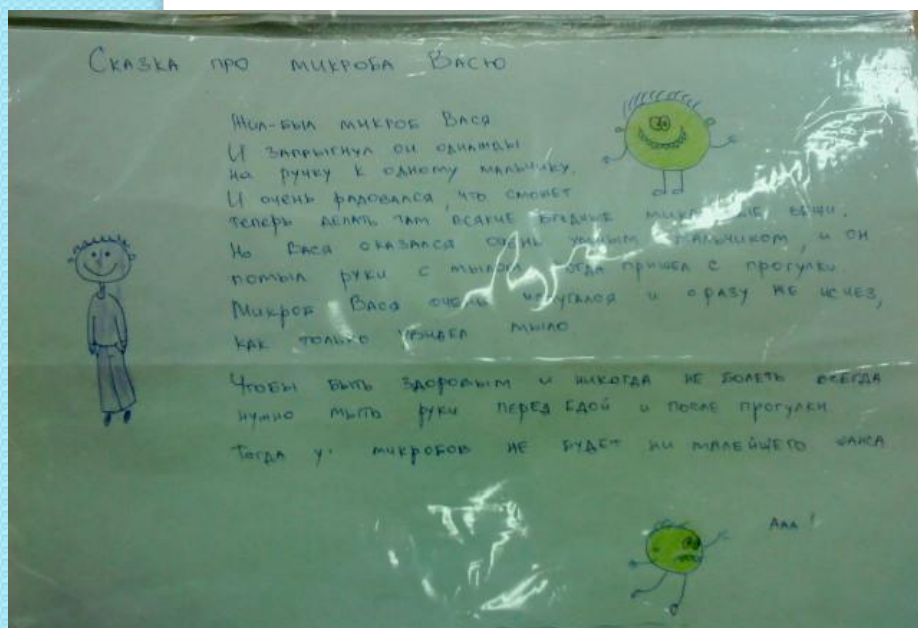 Сказка про микроба Васю
Жил-был микроб Вася
И запрыгнул он однажды
на ручку к одному мальчику.
И очень радовался, что сможет
теперь делать там всякие вредные вещи.
Но Вася оказался очень умным мальчиком, и он
помыл руки с мылом когда пришел с прогулки.
Микроб Вася очень испугался и сразу же исчез,
как только увидел мыло.
Чтобы быть здоровым и никогда не болеть всегда
нужно мыть руки перед едой и после прогулки
Тогда у микробов не будет ни малейшего шанса
Ааа!